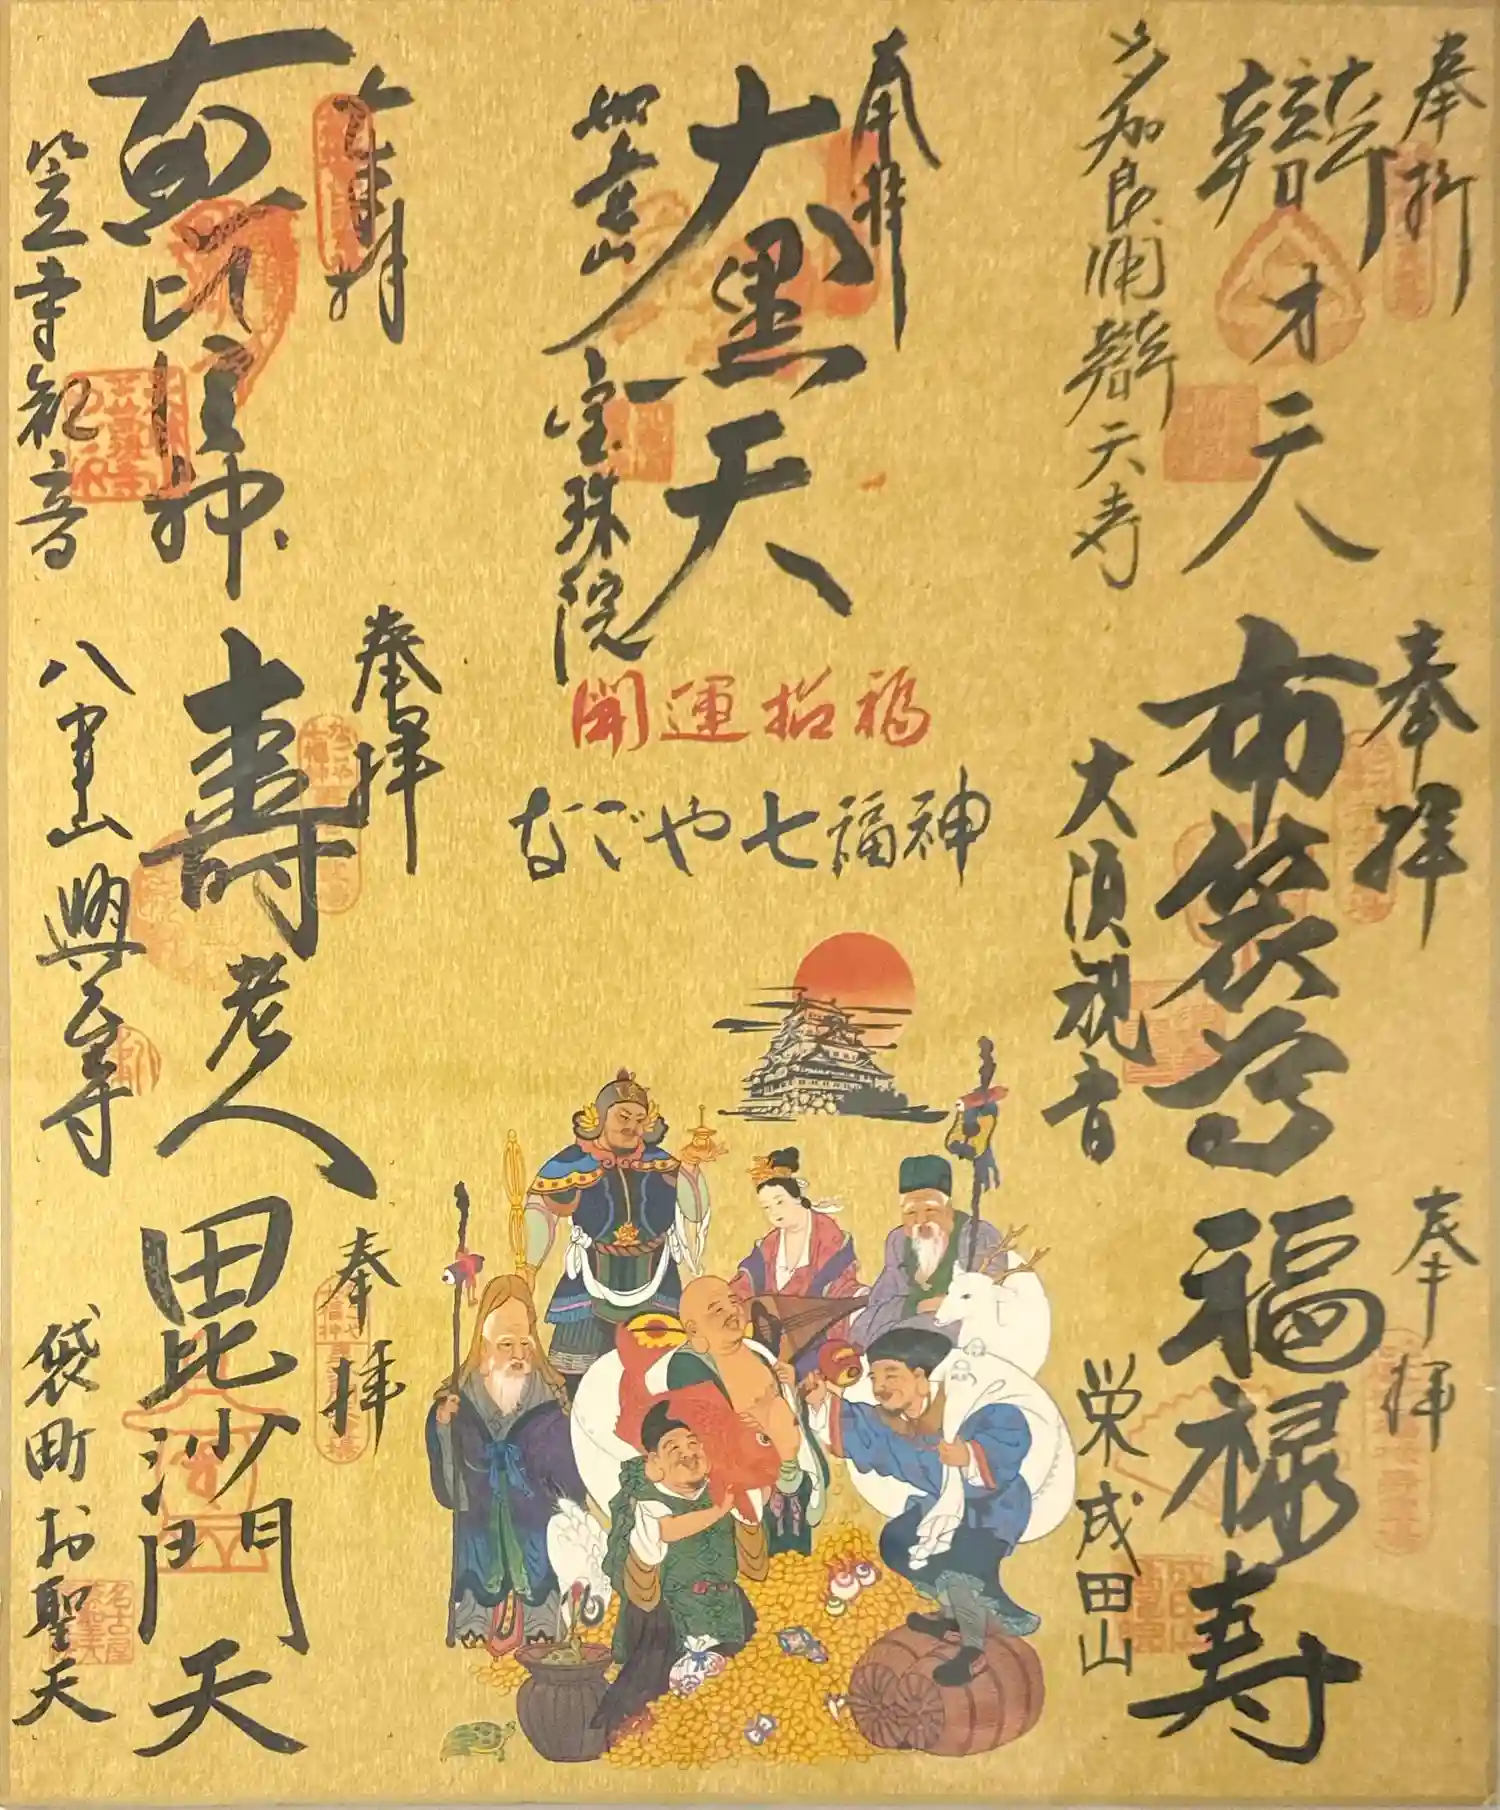 奉拝
辯才天
多加良浦辯天寺
奉拝
大黒天
如意山
宝珠院
奉拝
恵比須神
笠寺観音
開運招福
なごや七福神
奉拝
布袋尊
大須観音
奉拝
壽老人
八事山興正寺
奉拝
福禄寿
栄成田山
奉拝
毘沙門天
袋町お聖天